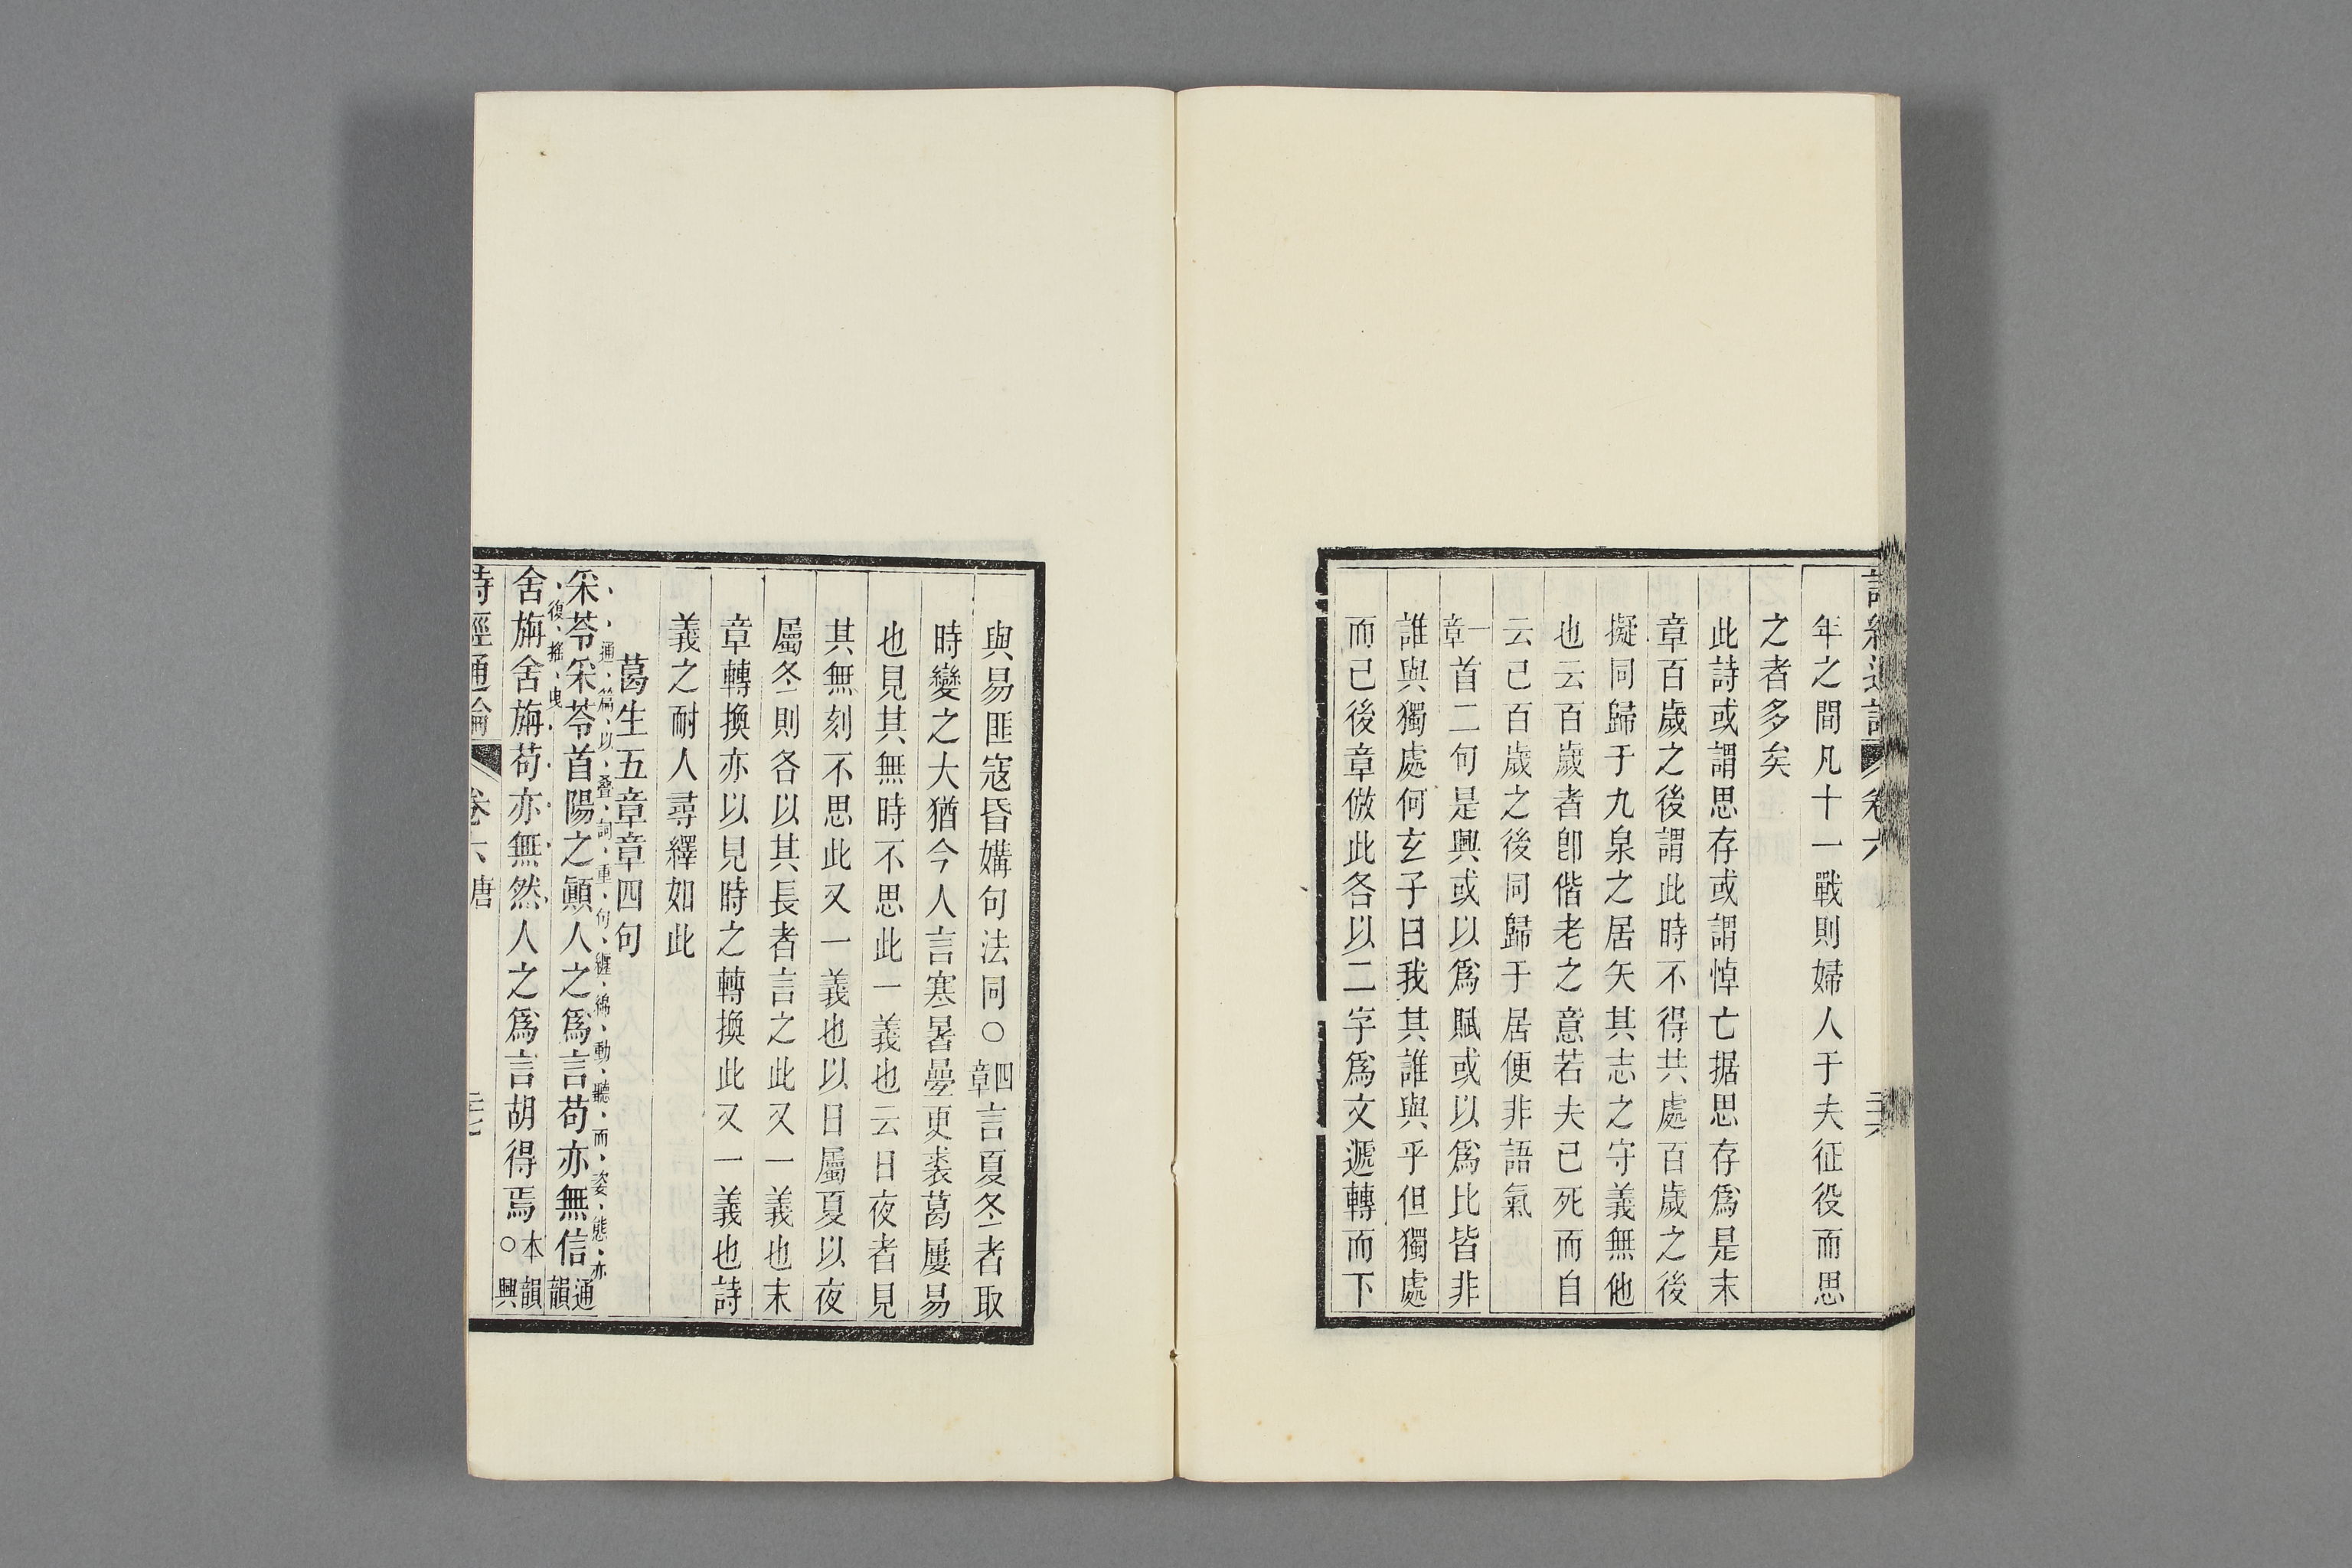 年之間凡十一戰則婦人于夫征役而思
之者多矣
此詩或謂思存或謂悼亡据思存爲是末
章百歲之後謂此時不得共處百歲之後
擬同歸于九泉之居矢其志之守義無他
也云百歲者卽偕老之意若夫已死而自
云己百歲之後同歸于居便非語氣
一章首二句是興或以爲賦或以爲比皆非
誰與獨處何玄子曰我其誰與乎但獨處
而已後章倣此各以二字爲文遞轉而下
與易匪寇昏媾句法同○四章言夏冬者取
時變之大猶今人言寒暑㬪更裘葛屢易
也見其無時不思此一義也云日夜者見
其無刻不思此又一義也以日屬夏以夜
屬冬則各以其長者言之此又一義也末
章轉換亦以見時之轉換此又一義也詩
義之耐人尋繹如此
葛生五章章四句
通篇以叠詞重句纏綿動聽而姿態亦
采苓采苓首陽之顚人之爲言苟亦無信通韻
復搖曳
舍旃舍旃苟亦無然人之爲言胡得焉本韻○興
詩經通論 卷六 唐